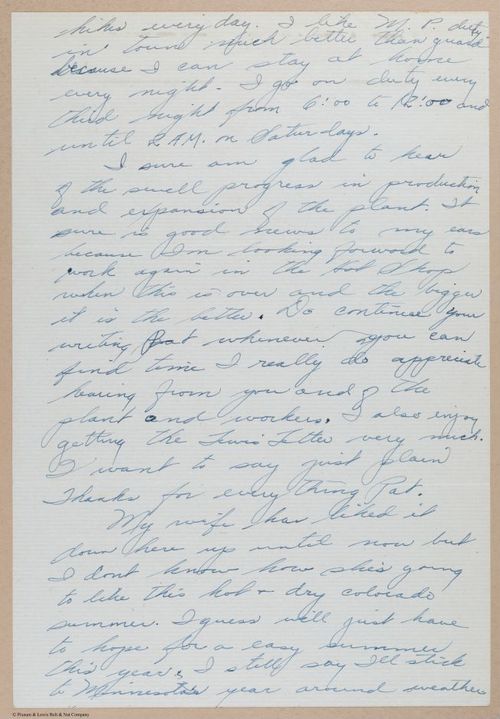 hikes every day. I like M.P. duty
in town much better than guard
because I can stay at home
every night. I go on duty every
third night from 6:00 to 12:00 and
until 2 A.M. on Saturdays.
I sure am glad to hear
of the swell progress in production
and expansion of the plant. It
sure is good news to my ears
because I'm looking forward to
work again in the Hot Shop
when this is over and the bigger
it is the better. Do continue your
writing Pat whenever you can
find time I really do appreciate
hearing from you and of the
plant and workers. I also enjoy
getting the Lewis Letter very much.
I want to say just plain
Thanks for every thing Pat.
My wife has liked it
down here up until now but
I dont know how shes going
to like this hot + dry colorado
summer. I guess will just have
to hope for a easy summer
this year. I still say I'll stick
to Minnesota's year around weather
© Pioneer & Lewis Bolt & Nut Company